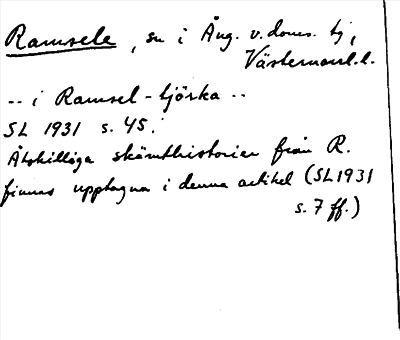 Ramsele, sn i Ång. v. doms. tj,
Västernorrl. l.
-- i Ramsel-tjörka --
SL 1931 s. 45.
Åtskilliga skämthistorier från R.
finnas upptagna i denna artikel (SL 1931
s. 7 ff.)